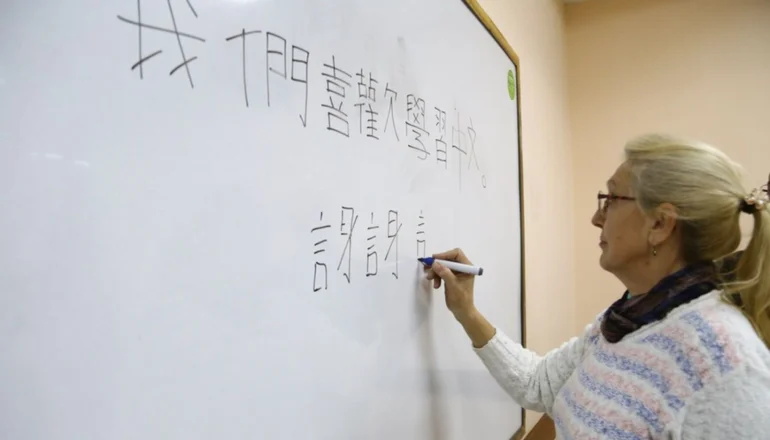 我們喜歡學習中文。
謝謝言